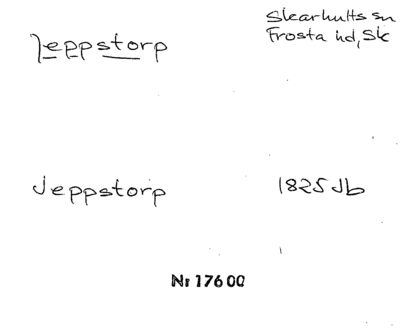 Jeppstorp
Skarhults sn
Frosta hd, Sk
Jeppstorp
1825 Jb
Nr 17600